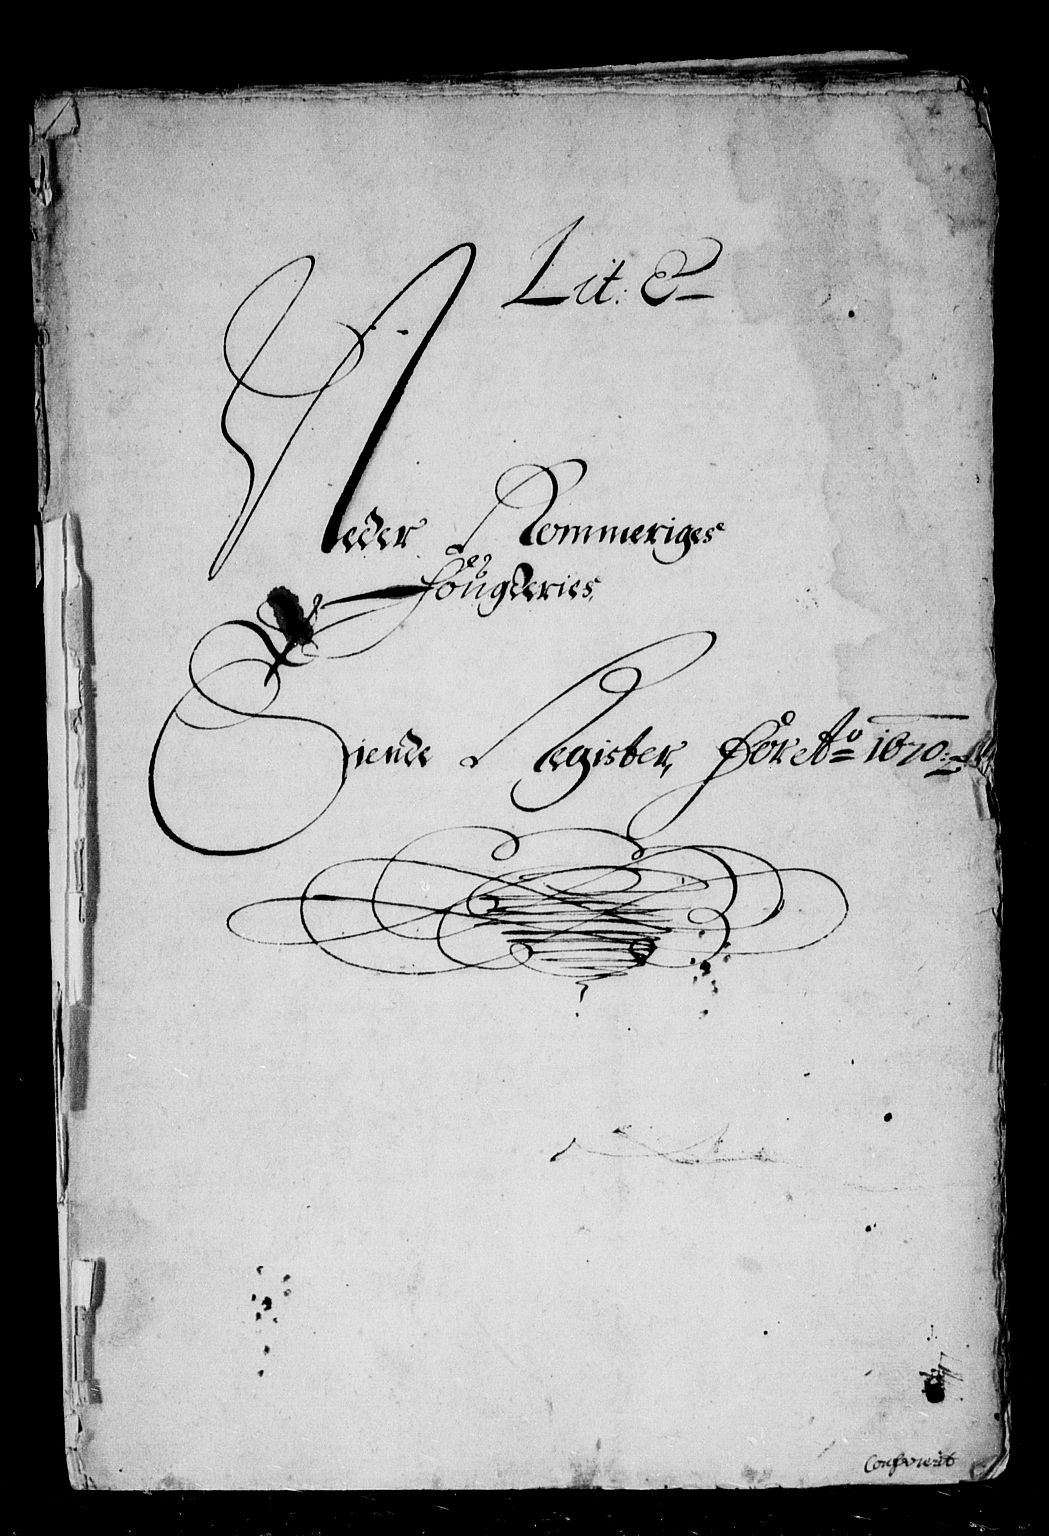 Lit: E
Neder Rommeriges
Fougderies
Tiende Register for Ao 1670:
Conferert